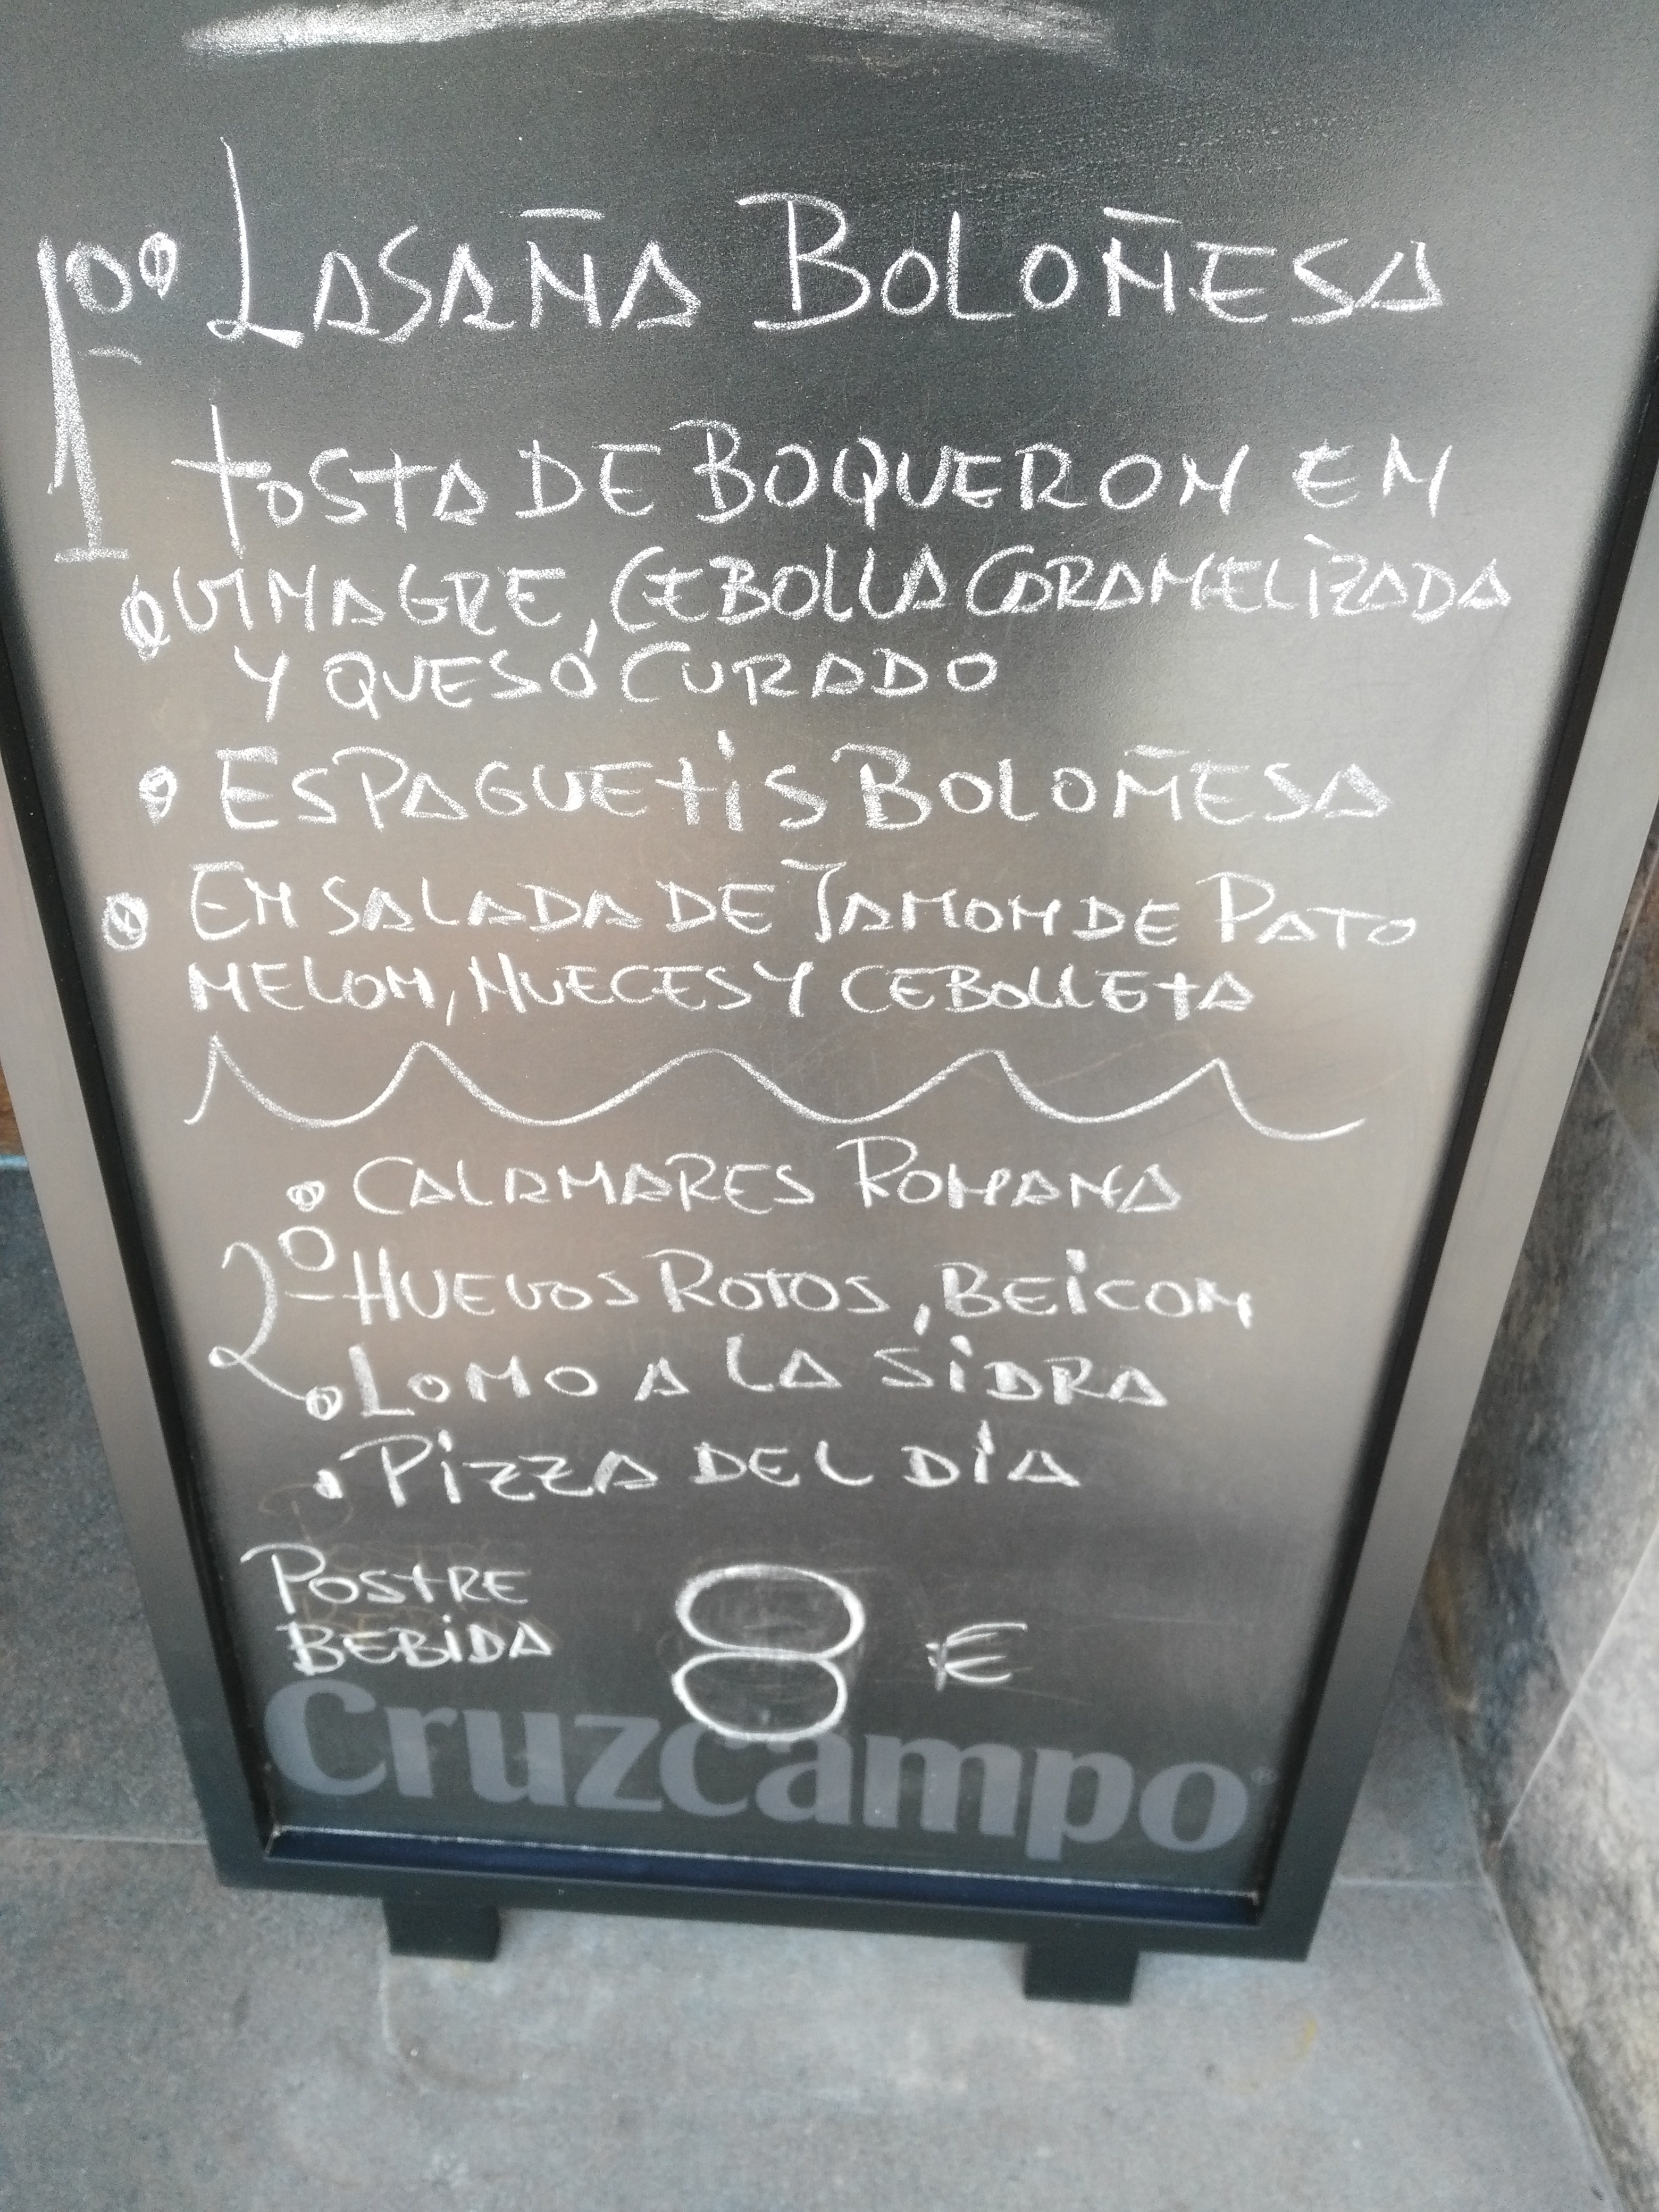 1º Lasaña Boloñesa
Tosta de Boqueron en
Vinagre, Cebolla Caramelizada
y queso Curado
Espaguetis Boloñesa
Ensalada de Jamon de Pato
Melon, Nueces y Cebolleta
Calamares Romana
2º Huevos Rotos, Beicon
Lomo a la Sidra
Pizza del Día
Postre
Bebida
8 €
Cruzcampo